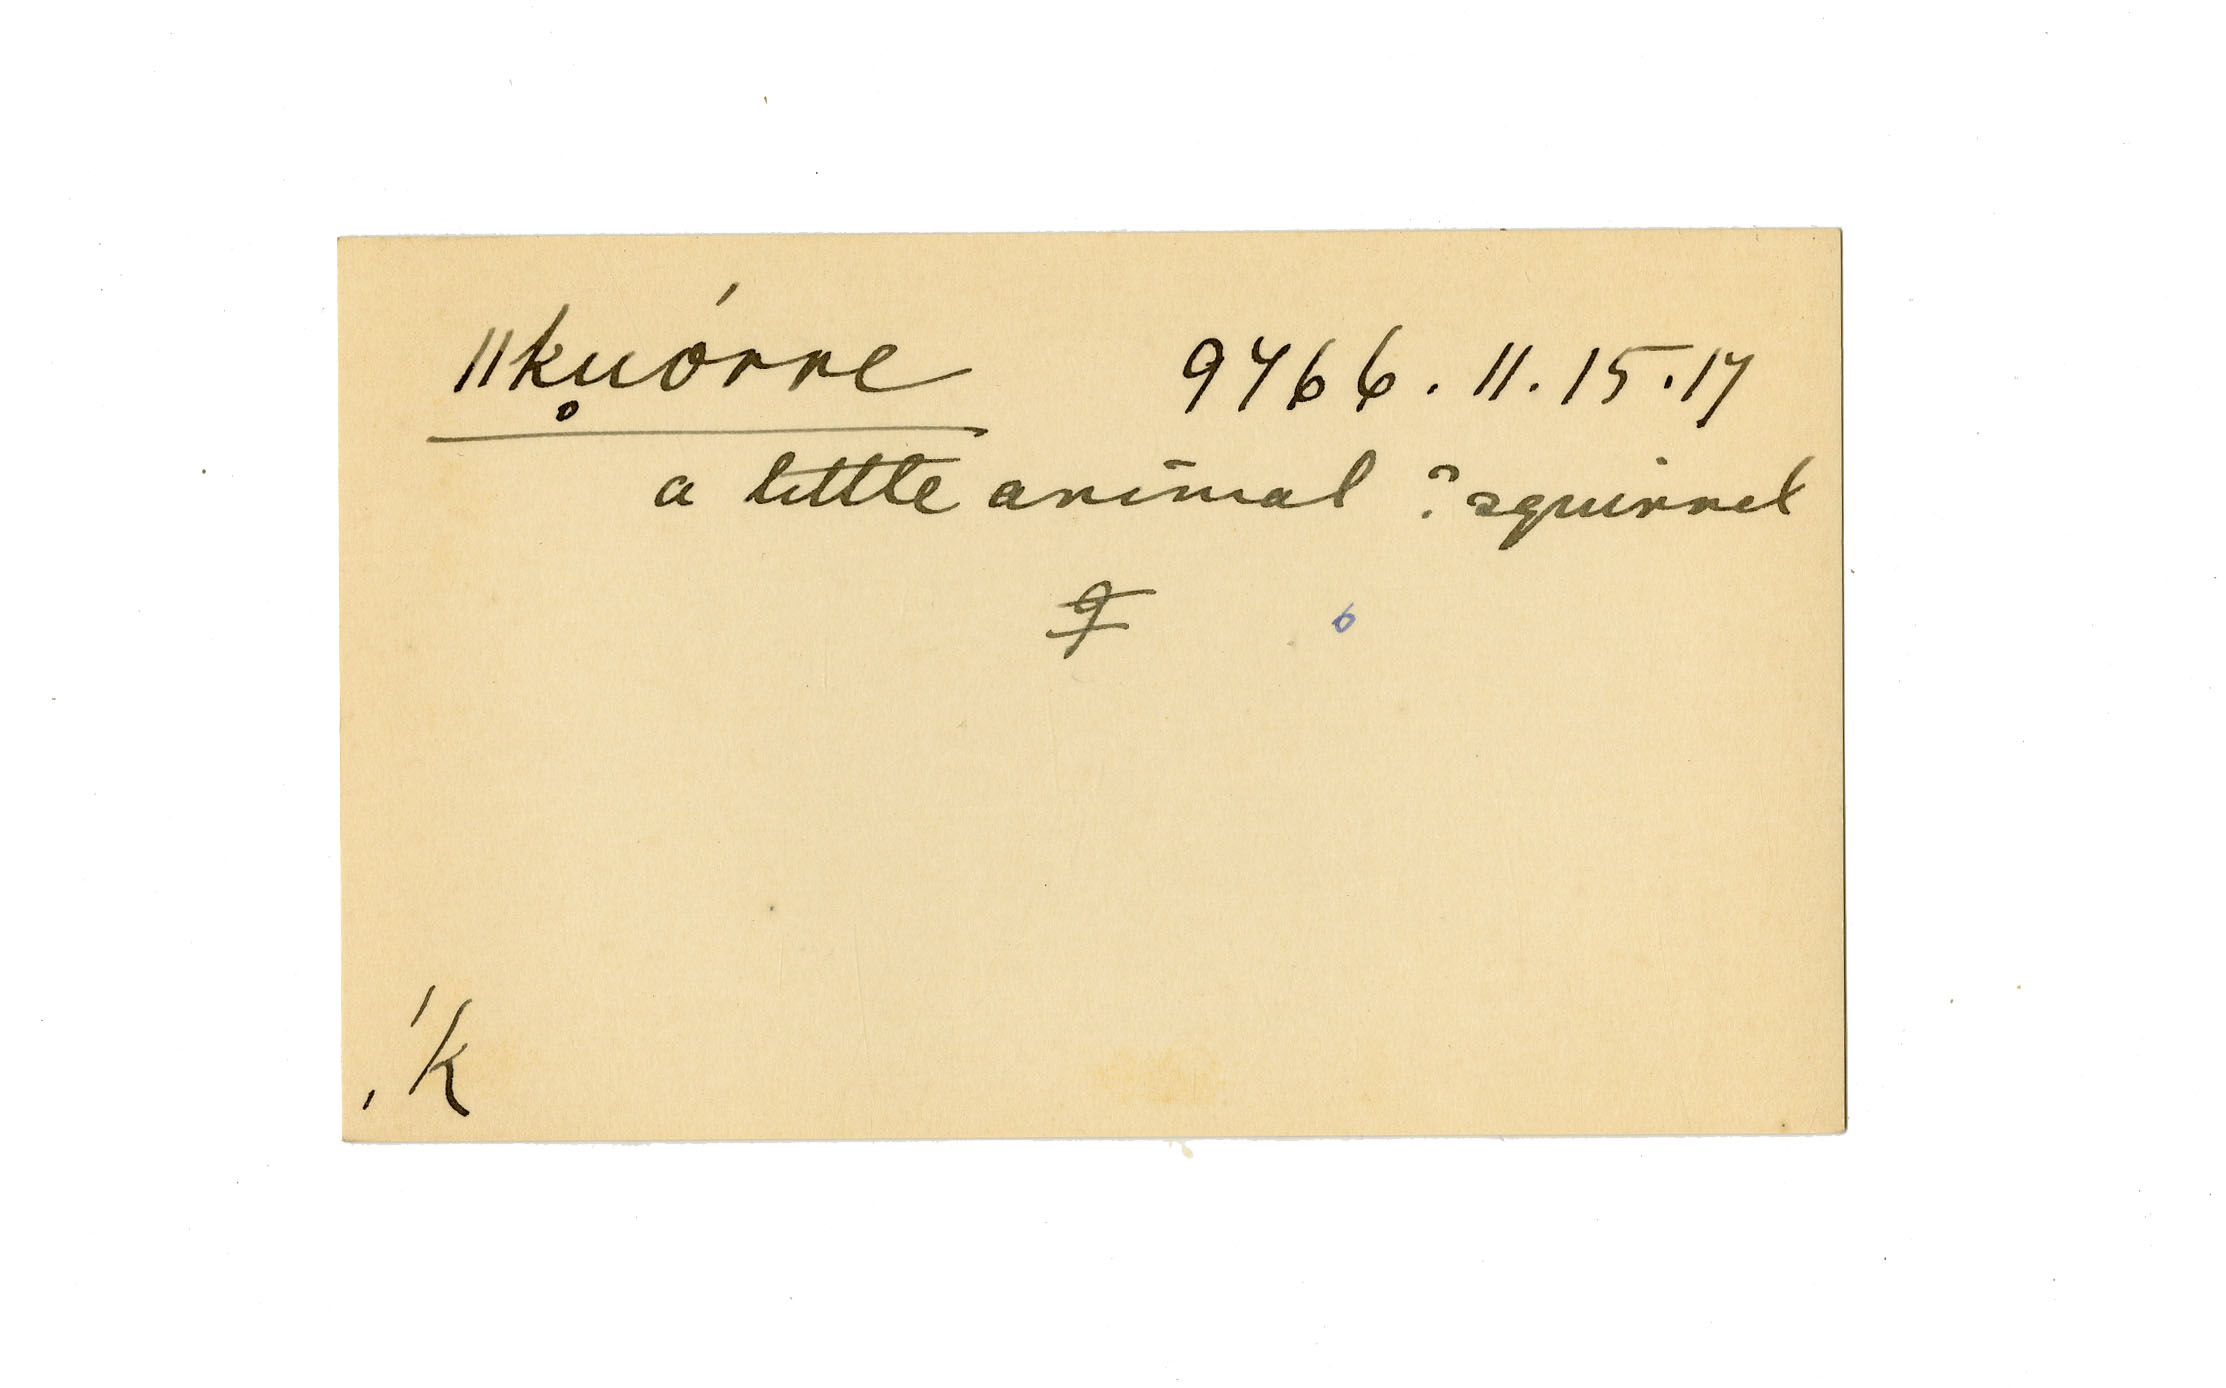 ǁk̥uórre 9466. 11. 15. 17
a little animal ? squirrel
9 6
!k